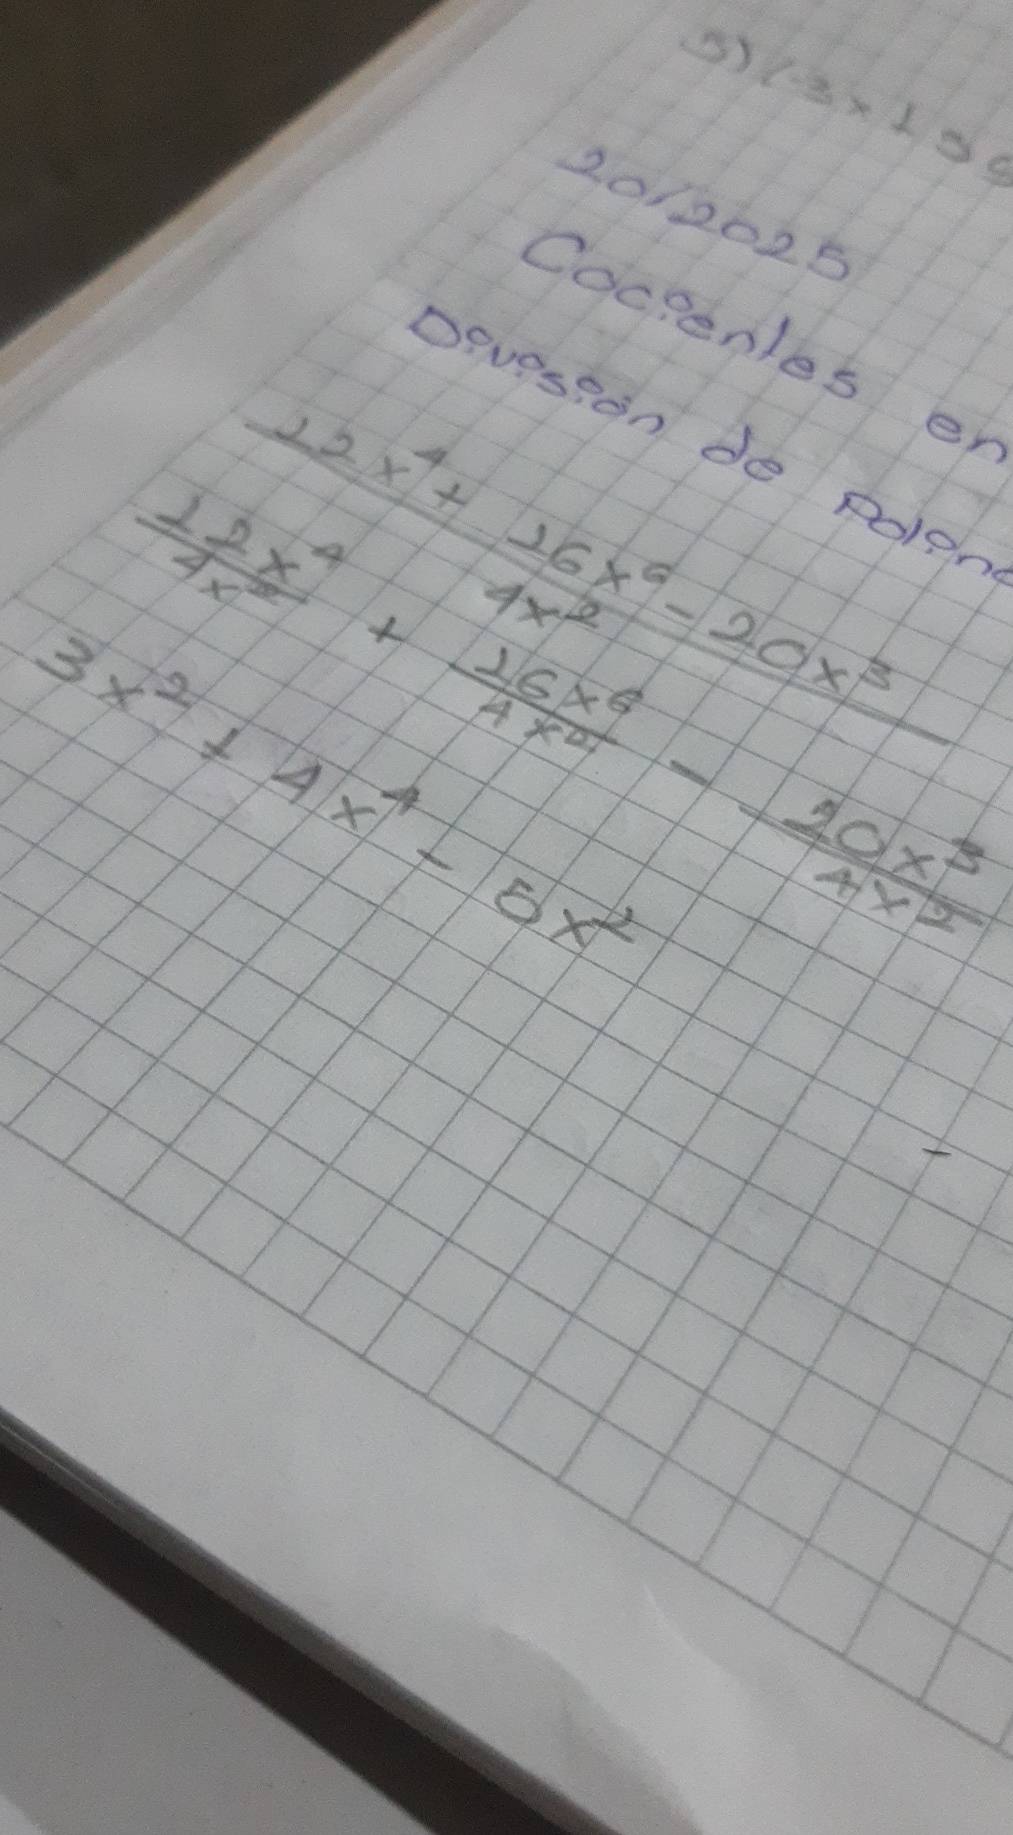 20/2025
Cocientes en
División de
12x⁴ + 16x⁶ - 20x³
4x²
12x⁴/4x² + 16x⁶/4x² - 20x³/4x²
3x² + 4x⁴ - 5x¹